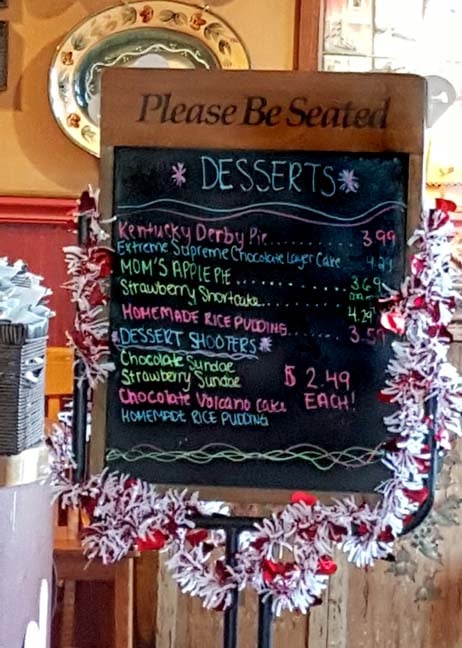 Please Be Seated
DESSERTS
Kentucky Derby Pie.......... 3.99
Extreme Supreme Chocolate Layer Cake 4.29
MOM'S APPLE PIE .......... 3.69
Strawberry Shortcake.......... 4.29
HOMEMADE RICE PUDDING....... 3.59
*DESSERT SHOOTERS*
Chocolate Sundae
Strawberry Sundae $2.49
Chocolate Volcano Cake EACH!
HOMEMADE RICE PUDDING